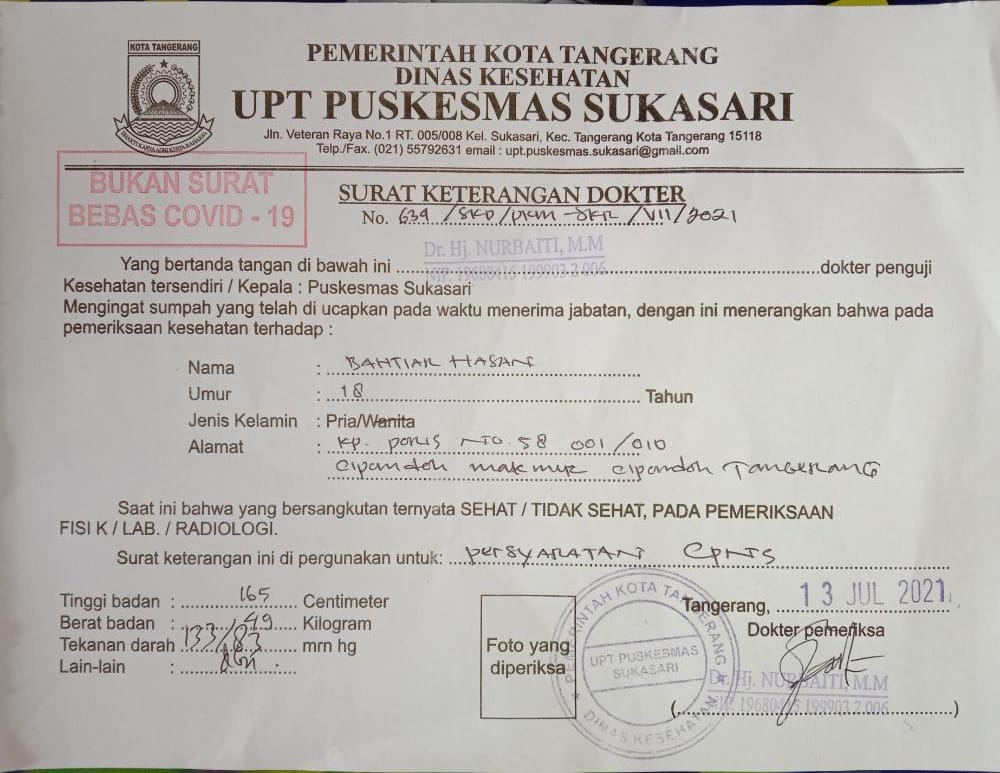 KOTA TANGERANG
BHAKTI KARYA ADHI KERTA RAHARJA
PEMERINTAH KOTA TANGERANG
DINAS KESEHATAN
UPT PUSKESMAS SUKASARI
Jln. Veteran Raya No.1 RT. 005/008 Kel. Sukasari, Kec. Tangerang Kota Tangerang 15118
Telp./Fax. (021) 55792631 email : upt.puskesmas.sukasari@gmail.com
BUKAN SURAT
BEBAS COVID - 19
SURAT KETERANGAN DOKTER
No. 639 /SKD/PKM-SKR/VII/2021
Dr. Hj. NURBAITI, M.M
Yang bertanda tangan di bawah ini ..... dokter penguji
NIP. 19680415 199903 2 006
Kesehatan tersendiri / Kepala : Puskesmas Sukasari
Mengingat sumpah yang telah di ucapkan pada waktu menerima jabatan, dengan ini menerangkan bahwa pada
pemeriksaan kesehatan terhadap :
Nama : BAHTIAR HASAN
Umur : 18 Tahun
Jenis Kelamin : Pria/Wanita
Alamat : Kp. poris No. 58 001/010
cipondoh makmur cipondoh TANGERANG
Saat ini bahwa yang bersangkutan ternyata SEHAT / TIDAK SEHAT, PADA PEMERIKSAAN
FISI K / LAB. / RADIOLOGI.
Surat keterangan ini di pergunakan untuk: persyaratan CPNS
Tinggi badan : 165 Centimeter
Berat badan : 49 Kilogram
Tekanan darah 133/83 mrn hg
Lain-lain :
Foto yang
diperiksa
PEMERINTAH KOTA TANGERANG
UPT PUSKESMAS
SUKASARI
DINAS KESEHATAN
Tangerang, 13 JUL 2021
Dokter pemeriksa
Dr. Hj. NURBAITI, M.M
NIP. 19680415 199903 2 006
(.....)